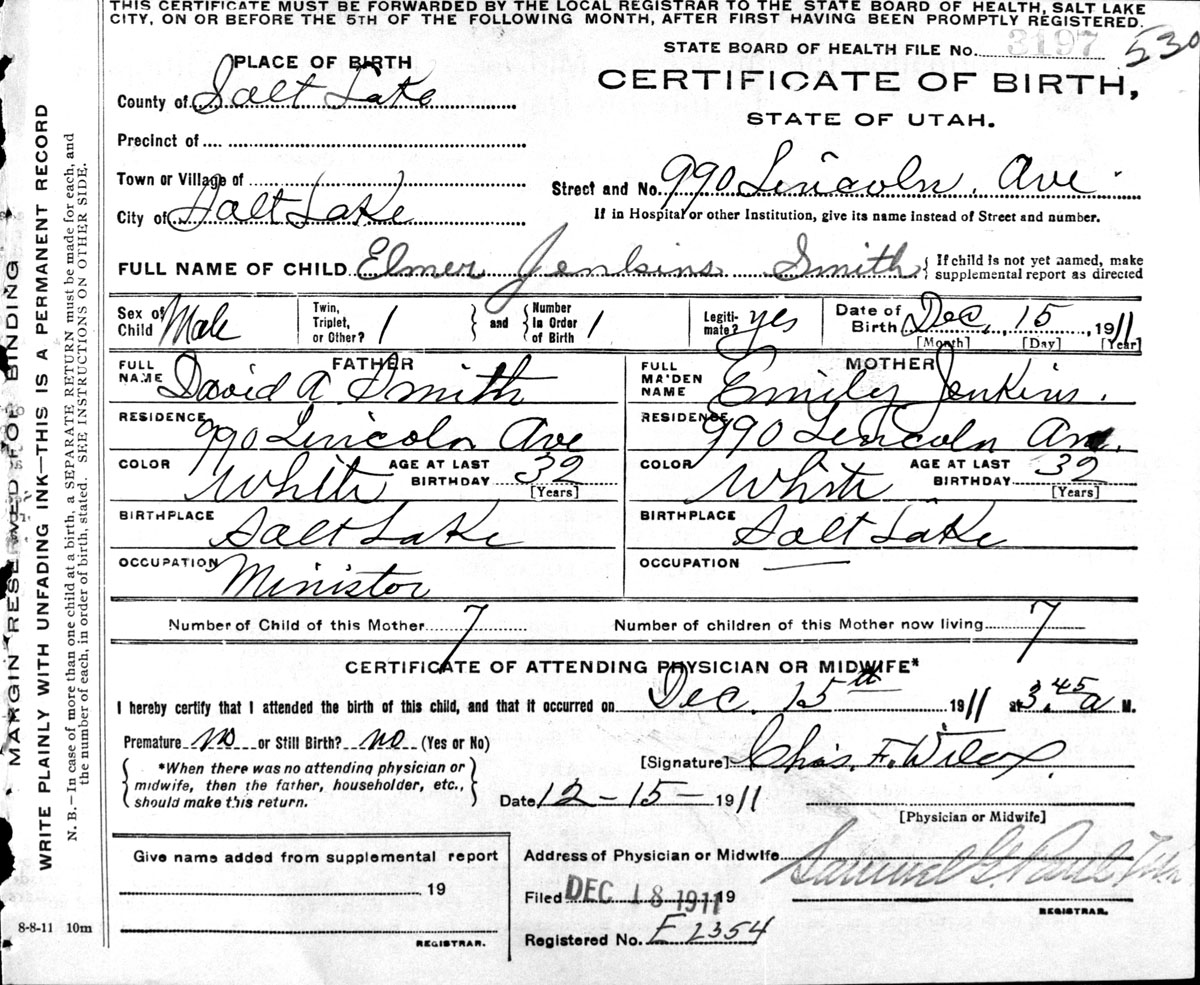 THIS CERTIFICATE MUST BE FORWARDED BY THE LOCAL REGISTRAR TO THE STATE BOARD OF HEALTH, SALT LAKE
CITY, ON OR BEFORE THE 5TH OF THE FOLLOWING MONTH, AFTER FIRST HAVING BEEN PROMPTLY REGISTERED.
STATE BOARD OF HEALTH FILE No. 3197 530
PLACE OF BIRTH
CERTIFICATE OF BIRTH,
STATE OF UTAH.
County of Salt Lake
Precinct of
Town or Village of
Street and No. 990 Lincoln Ave.
City of Salt Lake
If in Hospital or other Institution, give its name instead of Street and number.
FULL NAME OF CHILD Elmer Jenkins Smith { If child is not yet named, make
supplemental report as directed
Sex of Child Male
Twin, Triplet, or Other? 1 } and { Number In Order of Birth 1
Legiti-mate? yes
Date of Birth Dec. 15, 1911
[Month] [Day] [Year]
FATHER
FULL NAME David A. Smith
MOTHER
FULL MAIDEN NAME Emily Jenkins.
RESIDENCE 990 Lincoln Ave
RESIDENCE 990 Lincoln Ave.
COLOR White AGE AT LAST BIRTHDAY 32 [Years]
COLOR White AGE AT LAST BIRTHDAY 32 [Years]
BIRTHPLACE Salt Lake
BIRTHPLACE Salt Lake
OCCUPATION Ministor
OCCUPATION —
Number of Child of this Mother 7 Number of children of this Mother now living 7
CERTIFICATE OF ATTENDING PHYSICIAN OR MIDWIFE*
I hereby certify that I attended the birth of this child, and that it occurred on Dec. 15th 1911 at 3.45 a M.
Premature no or Still Birth? no (Yes or No)
[Signature] Chas. F. Wilcox.
{ *When there was no attending physician or
midwife, then the father, householder, etc.,
should make this return. }
Date 12-15- 1911
[Physician or Midwife]
Give name added from supplemental report
19
REGISTRAR.
Address of Physician or Midwife
Samuel G. Paul
Filed DEC 18 1911 19
REGISTRAR.
Registered No. E 2354
8-8-11 10m
MARGIN RESERVED FOR BINDING
WRITE PLAINLY WITH UNFADING INK—THIS IS A PERMANENT RECORD
N. B.—In case of more than one child at a birth, a SEPARATE RETURN must be made for each, and
the number of each, in order of birth, stated. SEE INSTRUCTIONS ON OTHER SIDE.